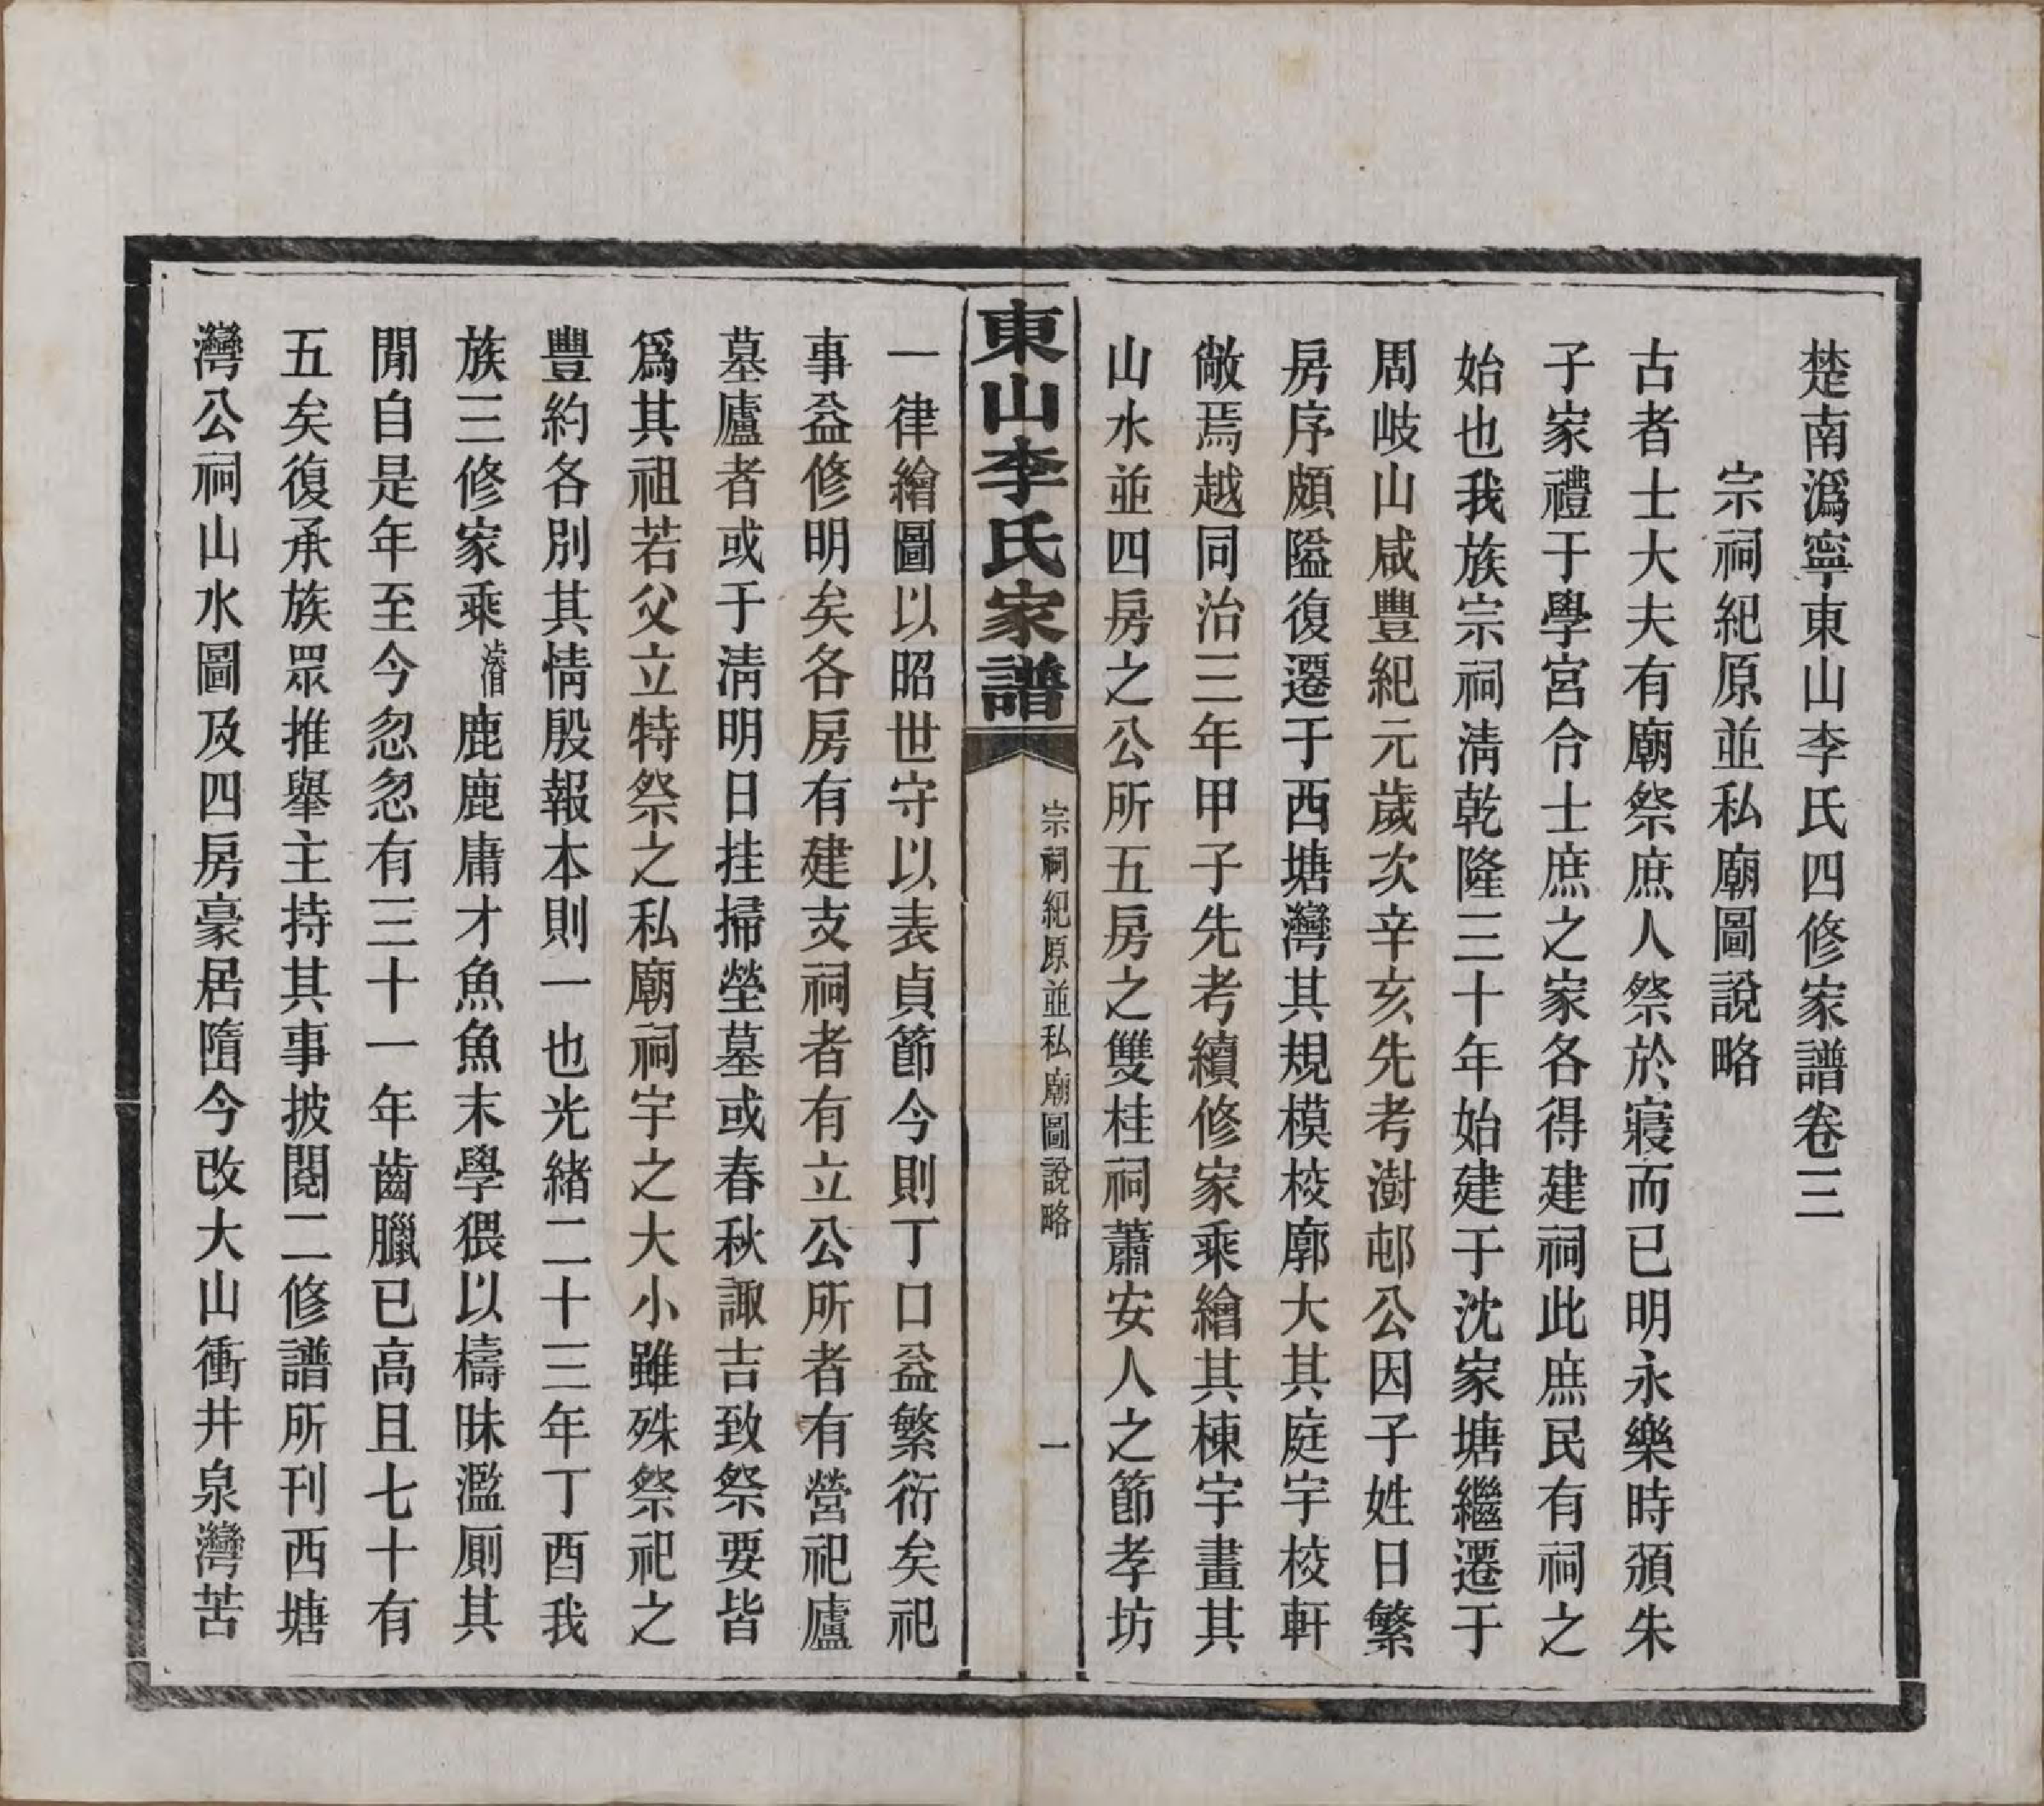 楚南潙寧東山李氏四修家譜卷三
宗祠紀原並私廟圖說略
古者士大夫有廟祭庶人祭於寢而已明永樂時頒朱
子家禮于學宮令士庶之家各得建祠此庶民有祠之
始也我族宗祠淸乾隆三十年始建于沈家塘繼遷于
周岐山咸豐紀元歲次辛亥先考澍邨公因子姓日繁
房序頗隘復遷于西塘灣其規模校廓大其庭宇校軒
敞焉越同治三年甲子先考續修家乘繪其棟宇畫其
山水並四房之公所五房之雙桂祠蕭安人之節孝坊
東山李氏家譜
宗祠紀原並私廟圖說略
一
一律繪圖以昭世守以表貞節今則丁口益繁衍矣祀
事益修明矣各房有建支祠者有立公所者有營祀廬
墓廬者或于淸明日挂掃塋墓或春秋諏吉致祭要皆
爲其祖若父立特祭之私廟祠宇之大小雖殊祭祀之
豐約各別其情殷報本則一也光緖二十三年丁酉我
族三修家乘濬鹿鹿庸才魚魚末學猥以檮昧濫廁其
閒自是年至今忽忽有三十一年齒臘已高且七十有
五矣復承族眾推舉主持其事披閱二修譜所刊西塘
灣公祠山水圖及四房豪居隋今改大山衝井泉灣苦